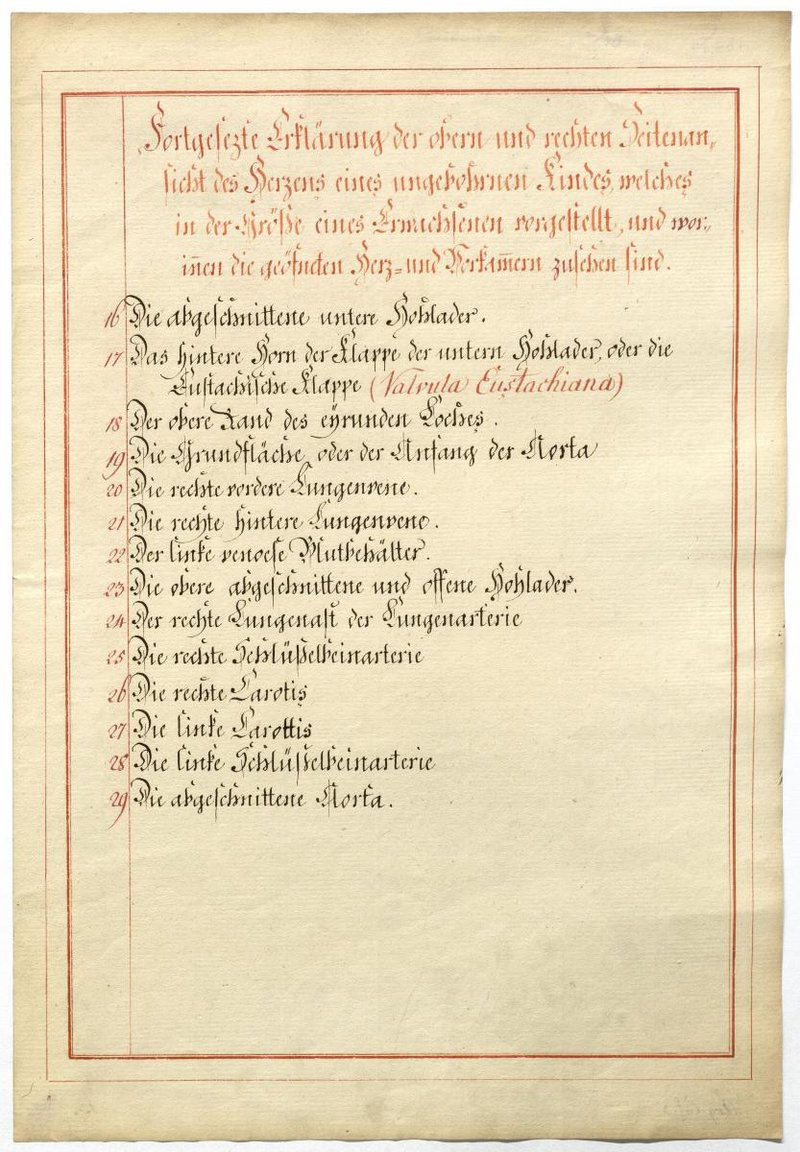 Fortgesezte Erklärung der obern und rechten Seitenan„
sicht des Herzens eines ungebohrnen Kindes, welches
in der Größe eines Erwachsenen vorgestellt, und wor„
in̄en die geöfneten Herz= und Vorkam̄ern zusehen sind.
16 Die abgeschnittene untere Hohlader.
17 Das hintere Horn der Klappe der untern Hohlader, oder die
Eustachische Klappe (Valvula Eustachiana)
18 Der obere Rand des eyrunden Loches.
19 Die Grundfläche, oder der Anfang der Aorta
20 Die rechte vordere Lungenvene.
21 Die rechte hintere Lungenvene.
22 Der linke venoese Blutbehälter.
23 Die obere abgeschnittene und offene Hohlader.
24 Der rechte Lungenast der Lungenarterie
25 Die rechte Schlüßelbeinarterie
26 Die rechte Carotis
27 Die linke Carottis
28 Die linke Schlüßelbeinarterie
29 Die abgeschnittene Aorta.